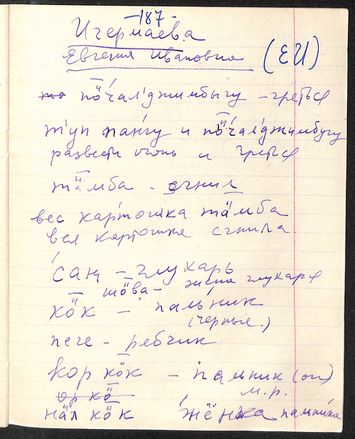 -187-
Ичермаева
Евгения Ивановна (ЕИ)
пӧ̄чалджимбыгу - греться
тӱп паӊгу и пӧ̄чалджимбугу
развести огонь и греться
тӓмба - сгнил
вес картошка тӓмба
вся картошка сгнила
саӊ - глухарь
тӧва - жена глухаря
кӧ̄к - пальник
(черные.)
пеге - рябчик
кор кӧ̄к - пальник (он)
м.р.
ор кӧ
нӓл кӧк жёнка пальника